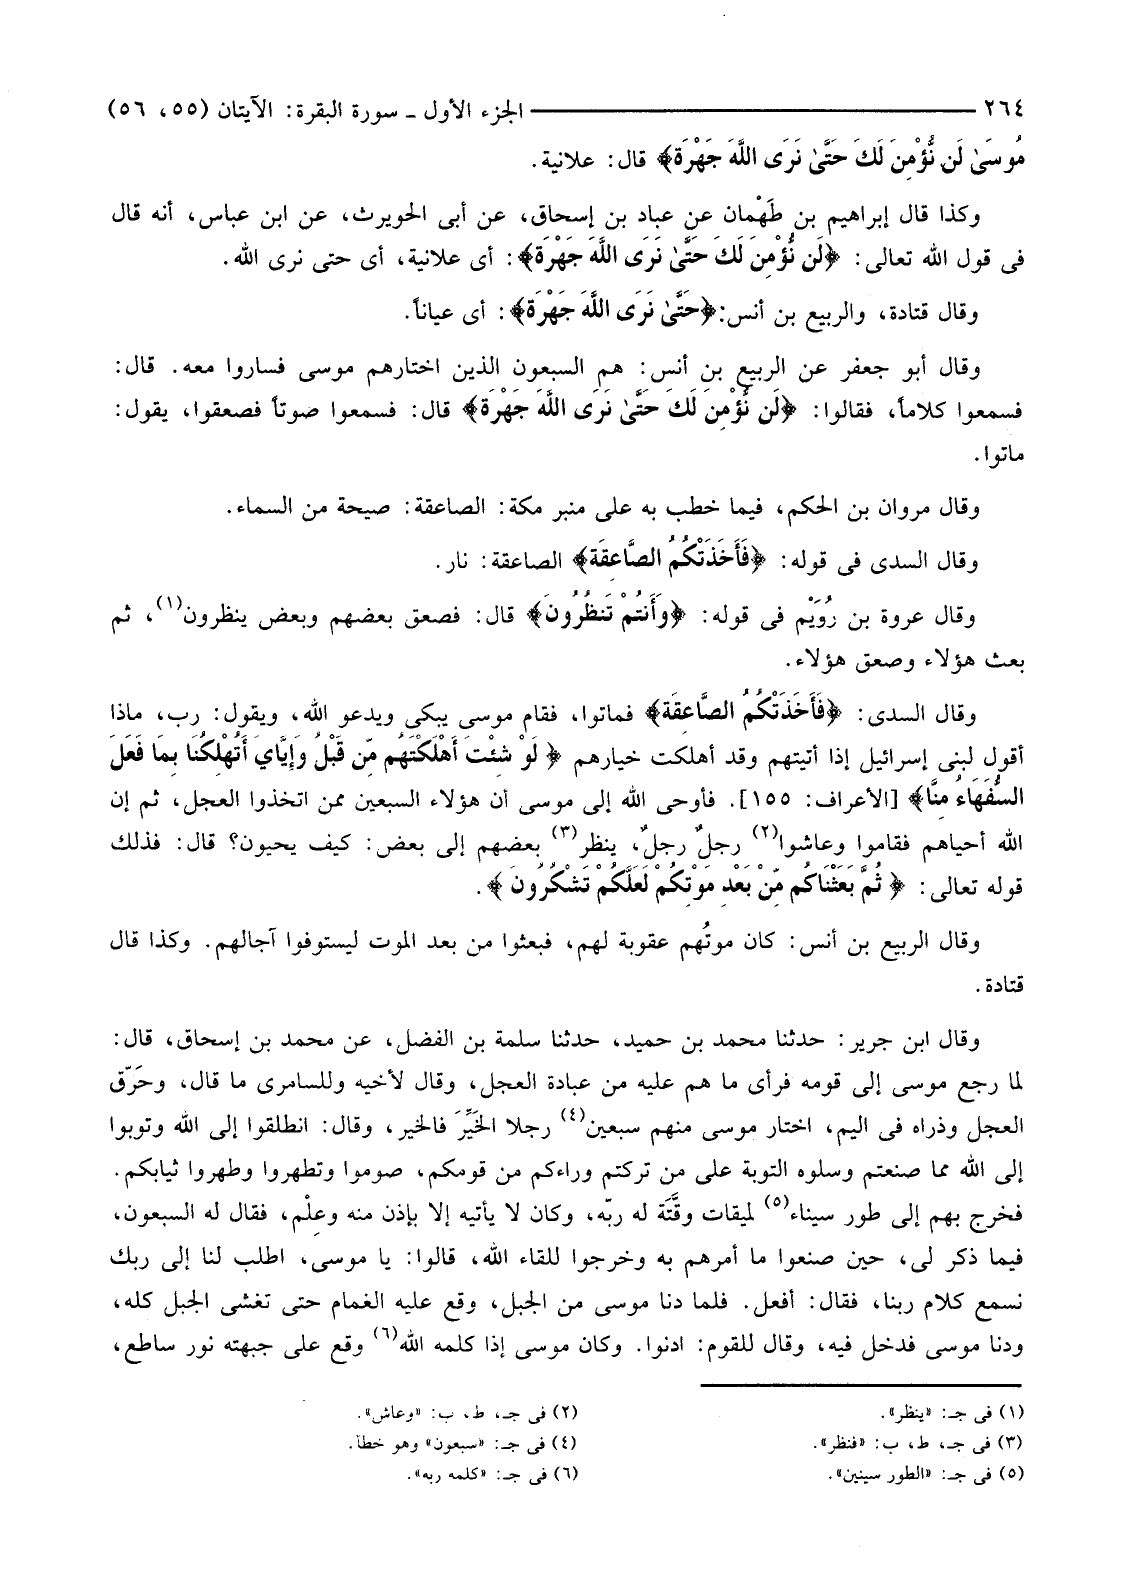 ٢٦٤ الجزء الأول ـ سورة البقرة: الآيتان (٥٥، ٥٦)
مُوسَىٰ لَن نُّؤْمِنَ لَكَ حَتَّىٰ نَرَى اللَّهَ جَهْرَةً﴾ قال: علانية.
وكذا قال إبراهيم بن طَهْمان عن عباد بن إسحاق، عن أبى الحويرث، عن ابن عباس، أنه قال
فى قول الله تعالى: ﴿لَن نُّؤْمِنَ لَكَ حَتَّىٰ نَرَى اللَّهَ جَهْرَةً﴾: أى علانية، أى حتى نرى الله.
وقال قتادة، والربيع بن أنس:﴿حَتَّىٰ نَرَى اللَّهَ جَهْرَةً﴾: أى عياناً.
وقال أبو جعفر عن الربيع بن أنس: هم السبعون الذين اختارهم موسى فساروا معه. قال:
فسمعوا كلاماً، فقالوا: ﴿لَن نُّؤْمِنَ لَكَ حَتَّىٰ نَرَى اللَّهَ جَهْرَةً﴾ قال: فسمعوا صوتاً فصعقوا، يقول:
ماتوا.
وقال مروان بن الحكم، فيما خطب به على منبر مكة: الصاعقة: صيحة من السماء.
وقال السدى فى قوله: ﴿فَأَخَذَتْكُمُ الصَّاعِقَةُ﴾ الصاعقة: نار.
وقال عروة بن رُوَيْم فى قوله: ﴿وَأَنتُمْ تَنظُرُونَ﴾ قال: فصعق بعضهم وبعض ينظرون(١)، ثم
بعث هؤلاء وصعق هؤلاء.
وقال السدى: ﴿فَأَخَذَتْكُمُ الصَّاعِقَةُ﴾ فماتوا، فقام موسى يبكى ويدعو الله، ويقول: رب، ماذا
أقول لبنى إسرائيل إذا أتيتهم وقد أهلكت خيارهم ﴿ لَوْ شِئْتَ أَهْلَكْتَهُم مِّن قَبْلُ وَإِيَّايَ أَتُهْلِكُنَا بِمَا فَعَلَ
السُّفَهَاءُ مِنَّا﴾ [الأعراف: ١٥٥]. فأوحى الله إلى موسى أن هؤلاء السبعين ممن اتخذوا العجل، ثم إن
الله أحياهم فقاموا وعاشوا(٢) رجلٌ رجلٌ، ينظر(٣) بعضهم إلى بعض: كيف يحيون؟ قال: فذلك
قوله تعالى: ﴿ ثُمَّ بَعَثْنَاكُم مِّنْ بَعْدِ مَوْتِكُمْ لَعَلَّكُمْ تَشْكُرُونَ ﴾.
وقال الربيع بن أنس: كان موتُهم عقوبة لهم، فبعثوا من بعد الموت ليستوفوا آجالهم. وكذا قال
قتادة.
وقال ابن جرير: حدثنا محمد بن حميد، حدثنا سلمة بن الفضل، عن محمد بن إسحاق، قال:
لما رجع موسى إلى قومه فرأى ما هم عليه من عبادة العجل، وقال لأخيه وللسامرى ما قال، وحَرّق
العجل وذراه فى اليم، اختار موسى منهم سبعين(٤) رجلا الخَيِّرَ فالخير، وقال: انطلقوا إلى الله وتوبوا
إلى الله مما صنعتم وسلوه التوبة على من تركتم وراءكم من قومكم، صوموا وتطهروا وطهروا ثيابكم.
فخرج بهم إلى طور سيناء(٥) لميقات وقَّتَه له ربّه، وكان لا يأتيه إلا بإذن منه وعلْم، فقال له السبعون،
فيما ذكر لى، حين صنعوا ما أمرهم به وخرجوا للقاء الله، قالوا: يا موسى، اطلب لنا إلى ربك
نسمع كلام ربنا، فقال: أفعل. فلما دنا موسى من الجبل، وقع عليه الغمام حتى تغشى الجبل كله،
ودنا موسى فدخل فيه، وقال للقوم: ادنوا. وكان موسى إذا كلمه الله(٦) وقع على جبهته نور ساطع،
(١) فى جـ: «ينظر». (٢) فى جـ، ط، ب: «وعاش».
(٣) فى جـ، ط، ب: «فنظر». (٤) فى جـ: «سبعون» وهو خطأ.
(٥) فى جـ: «الطور سينين». (٦) فى جـ: «كلمه ربه».